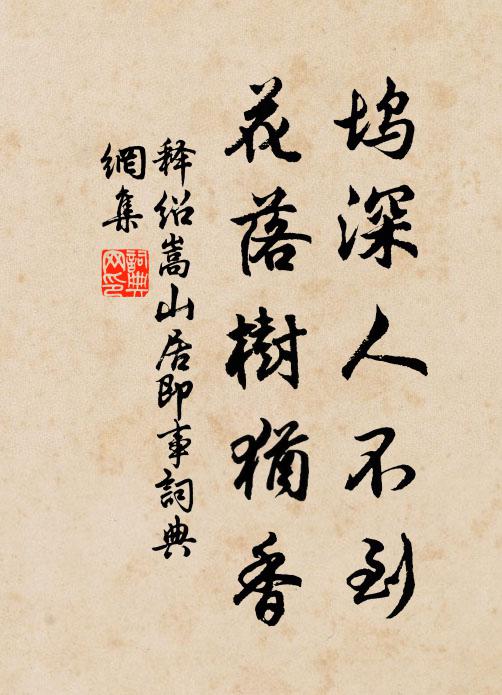 坞深人不到
花落樹猶香
释绍嵩山居即事詞典
網集
詞典
网印